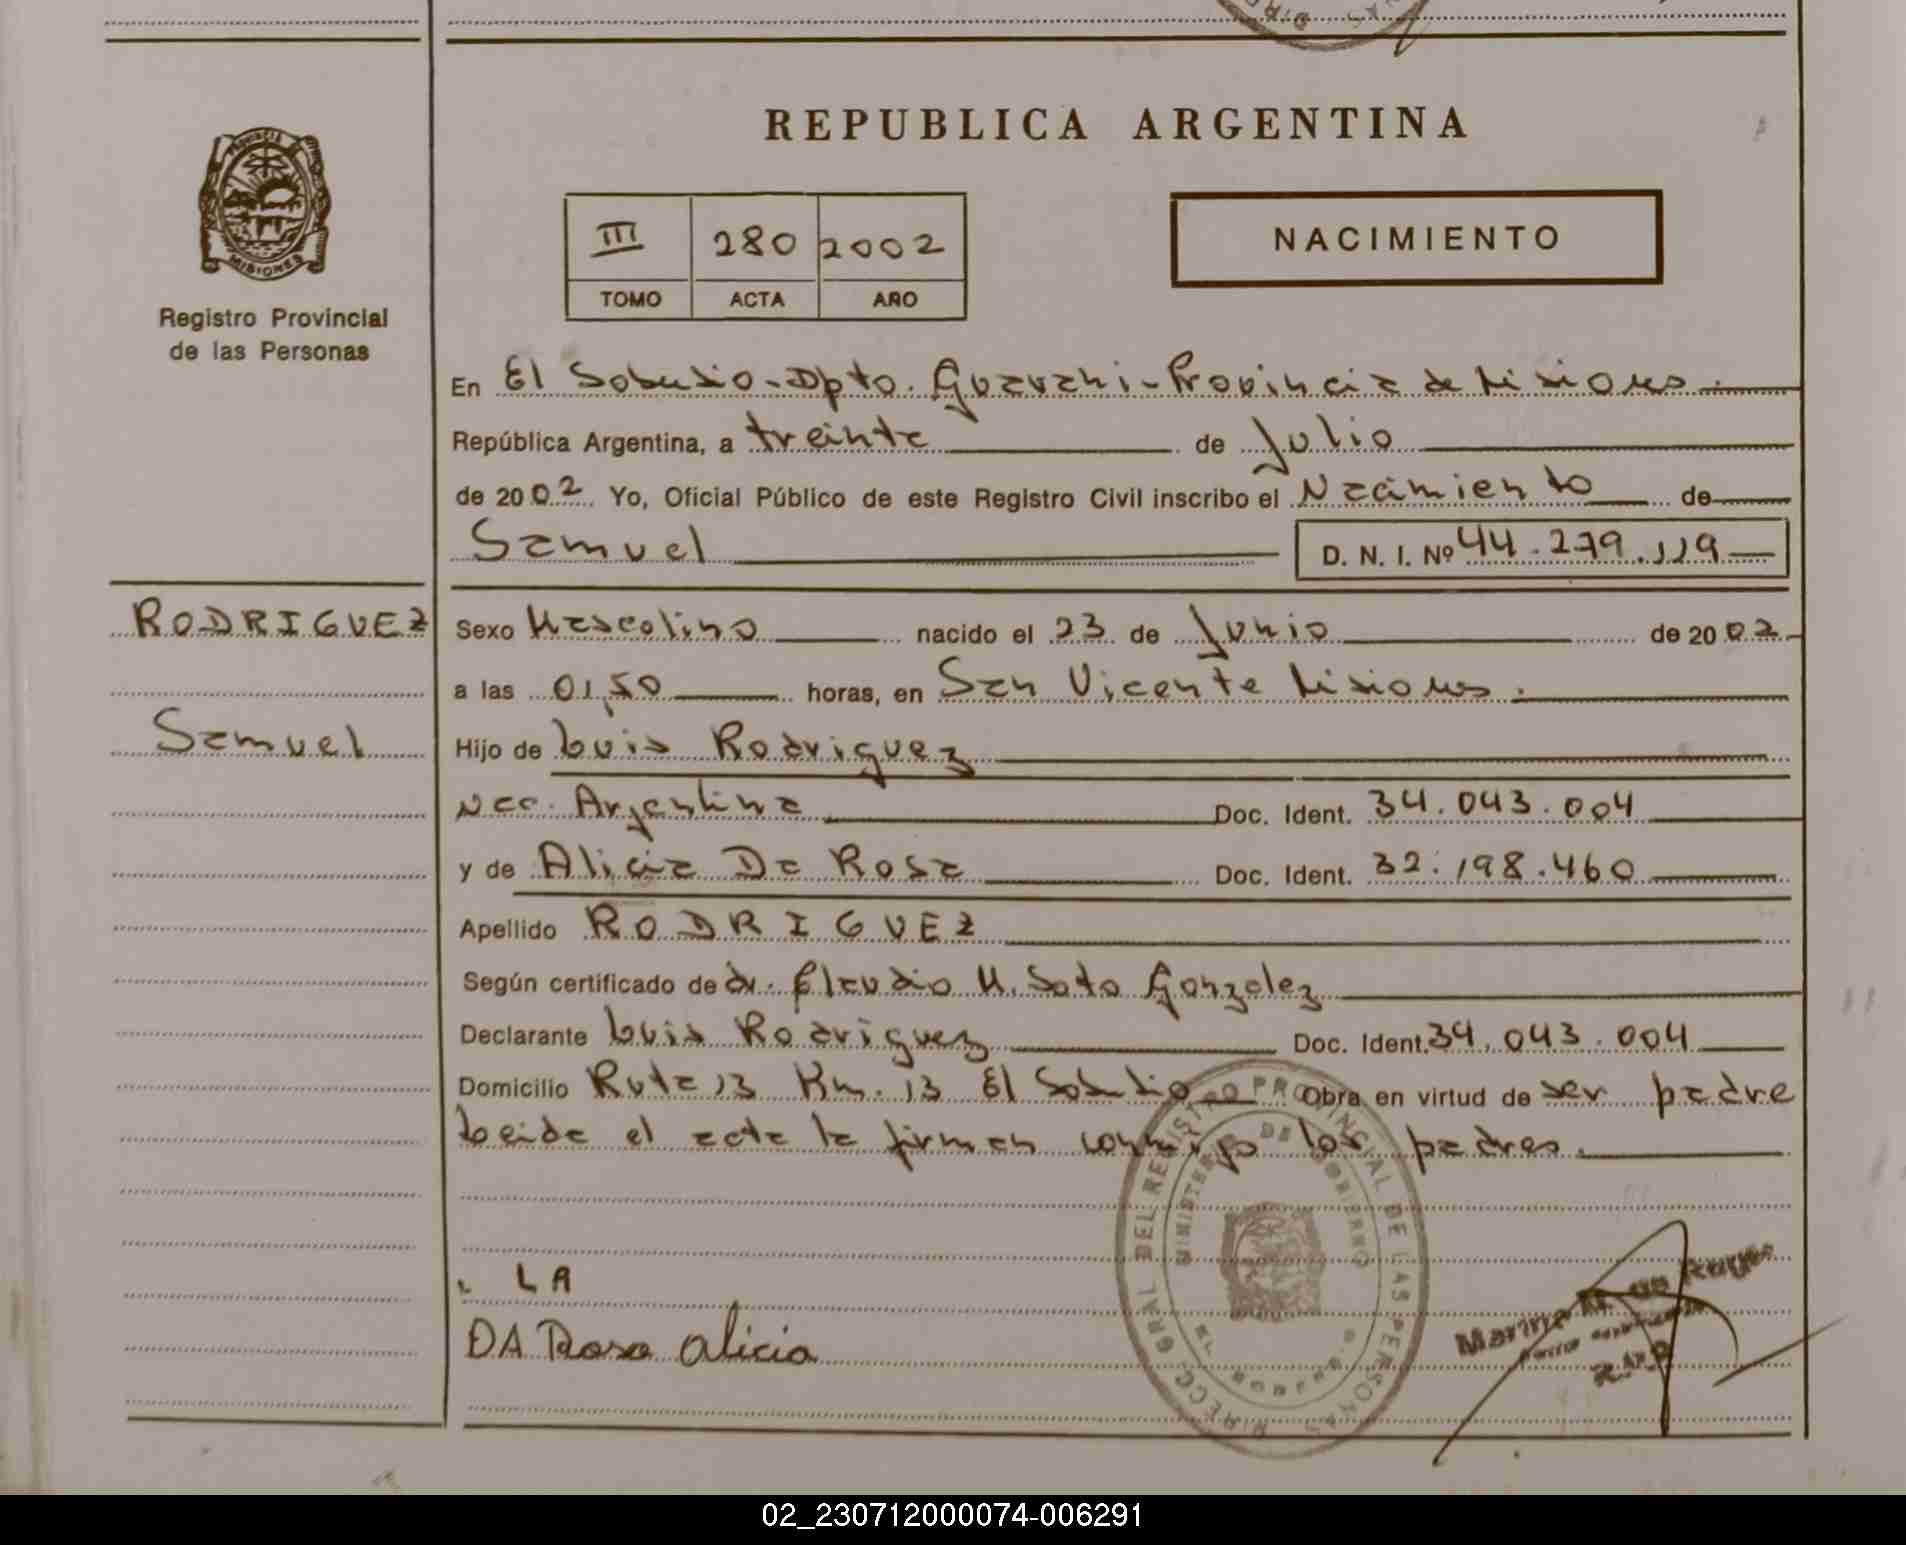 REPUBLICA ARGENTINA
PROVINCIA DE
MISIONES
Registro Provincial
de las Personas
III 280 2002
TOMO ACTA AÑO
NACIMIENTO
En El Soberbio - Dpto. Guarani - Provincia de Misiones.
República Argentina, a treinta de Julio
de 2002 Yo, Oficial Público de este Registro Civil inscribo el Nacimiento de
Samuel D. N. I. Nº 44.279.119
RODRIGUEZ
Samuel
Sexo Masculino nacido el 23 de Junio de 2002
a las 01,50 horas, en San Vicente Misiones.
Hijo de Luis Rodriguez
Nac. Argentina Doc. Ident. 34.043.004
y de Alicia Da Rosa Doc. Ident. 32.198.460
Apellido RODRIGUEZ
Según certificado de dr. Claudio M. Soto Gonzalez
Declarante Luis Rodriguez Doc. Ident. 34.043.004
Domicilio Ruta 13 Km. 13 El Soberbio Obra en virtud de ser padre
Leida el acta la firman conmigo los padres.
DIRECC. GRAL DEL REGISTRO PROVINCIAL DE LAS PERSONAS
MINISTERIO DE GOBIERNO
EL SOBERBIO
L A
DA Rosa alicia
Marina de
02_230712000074-006291